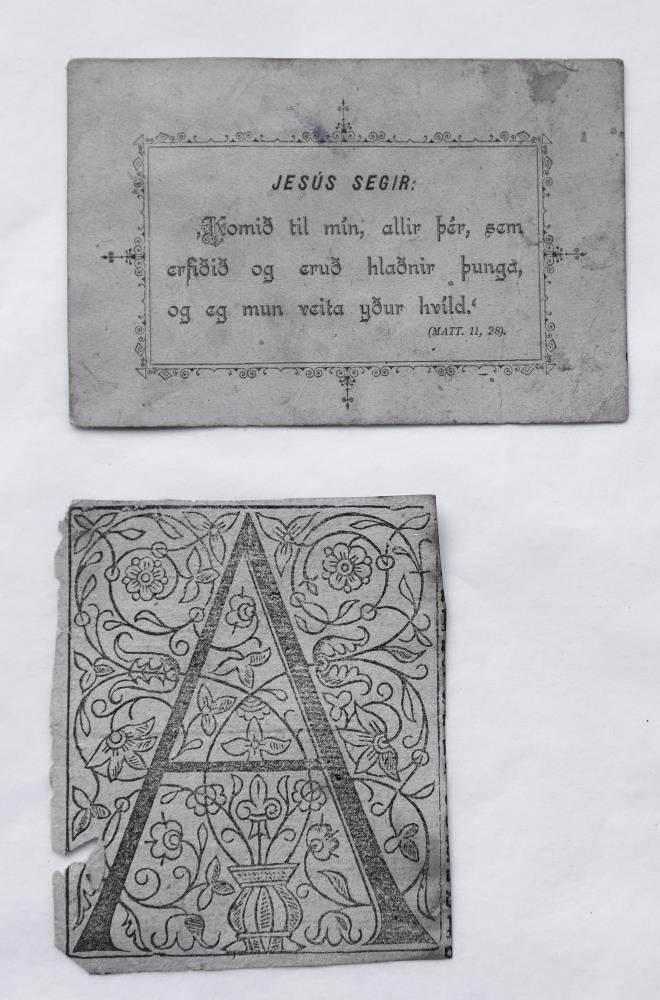 JESÚS SEGIR:
‚Komið til mín, allir þér, sem
erfiðið og eruð hlaðnir þunga,
og eg mun veita yður hvíld.‘
(MATT. 11, 28).
A